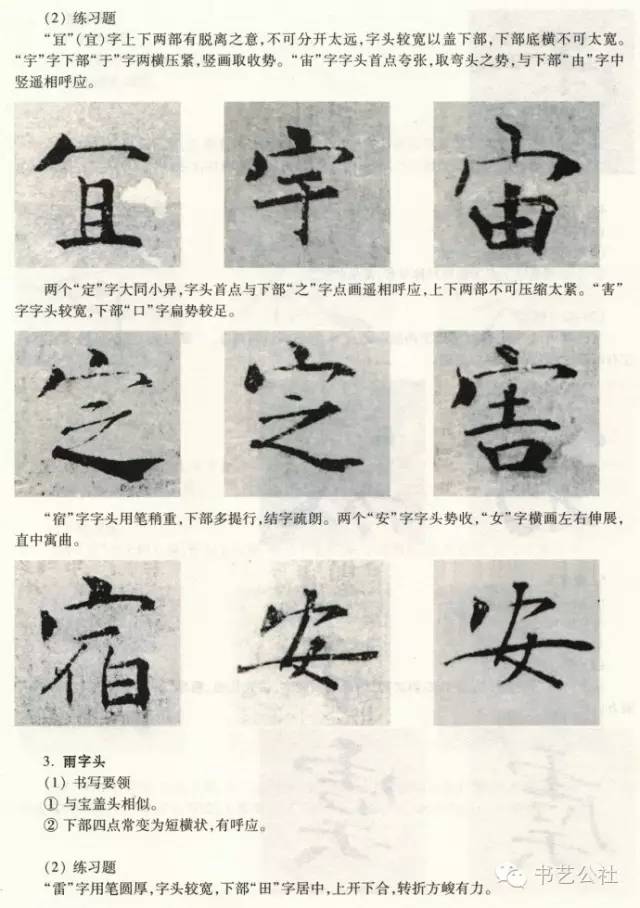 (2) 练习题
“冝”(宜)字上下两部有脱离之意,不可分开太远,字头较宽以盖下部,下部底横不可太宽。
“宇”字下部“于”字两横压紧,竖画取收势。“宙”字字头首点夸张,取弯头之势,与下部“由”字中
竖遥相呼应。
冝 宇 宙
两个“定”字大同小异,字头首点与下部“之”字点画遥相呼应,上下两部不可压缩太紧。“害”
字字头较宽,下部“口”字扁势较足。
定 定 害
“宿”字字头用笔稍重,下部多提行,结字疏朗。两个“安”字字头势收,“女”字横画左右伸展,
直中寓曲。
宿 安 安
3. 雨字头
(1) 书写要领
① 与宝盖头相似。
② 下部四点常变为短横状,有呼应。
(2) 练习题
“雷”字用笔圆厚,字头较宽,下部“田”字居中,上开下合,转折方峻有力。
书艺公社